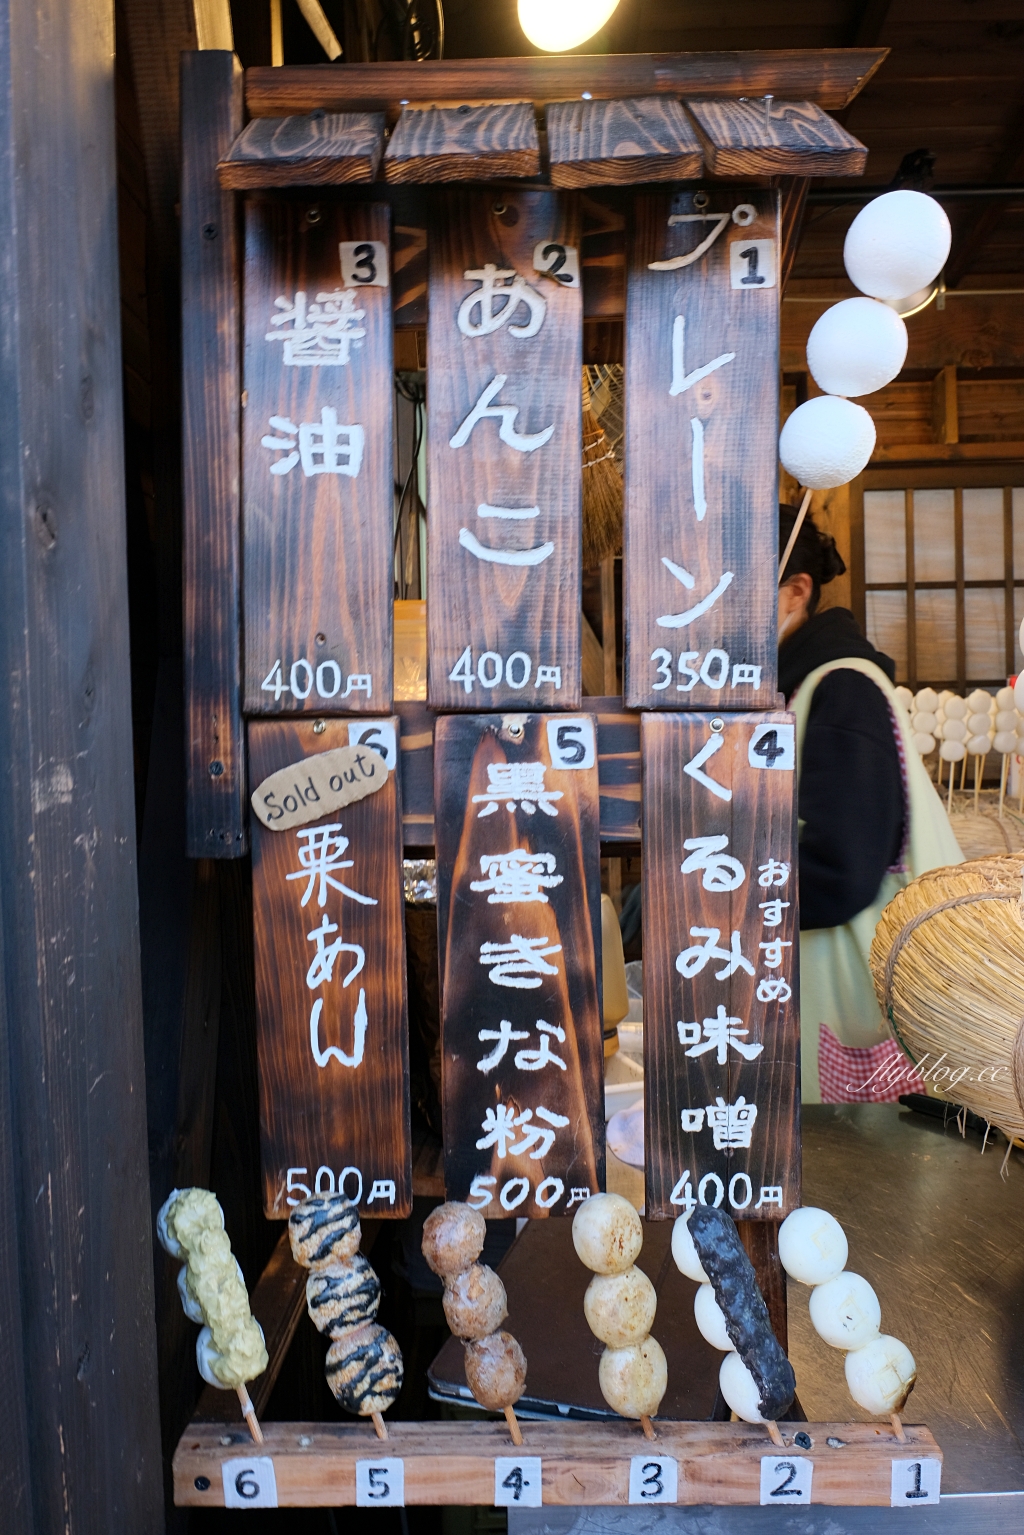 1
プレーン
350円
2
あんこ
400円
3
醤油
400円
4
くるみ味噌
おすすめ
400円
5
黒蜜きな粉
500円
6
Sold out
栗あん
500円
flyblog.cc
6 5 4 3 2 1